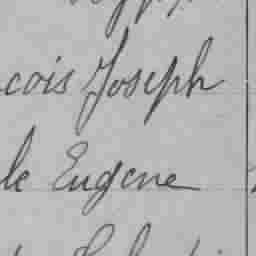 cois Joseph
le Eugene